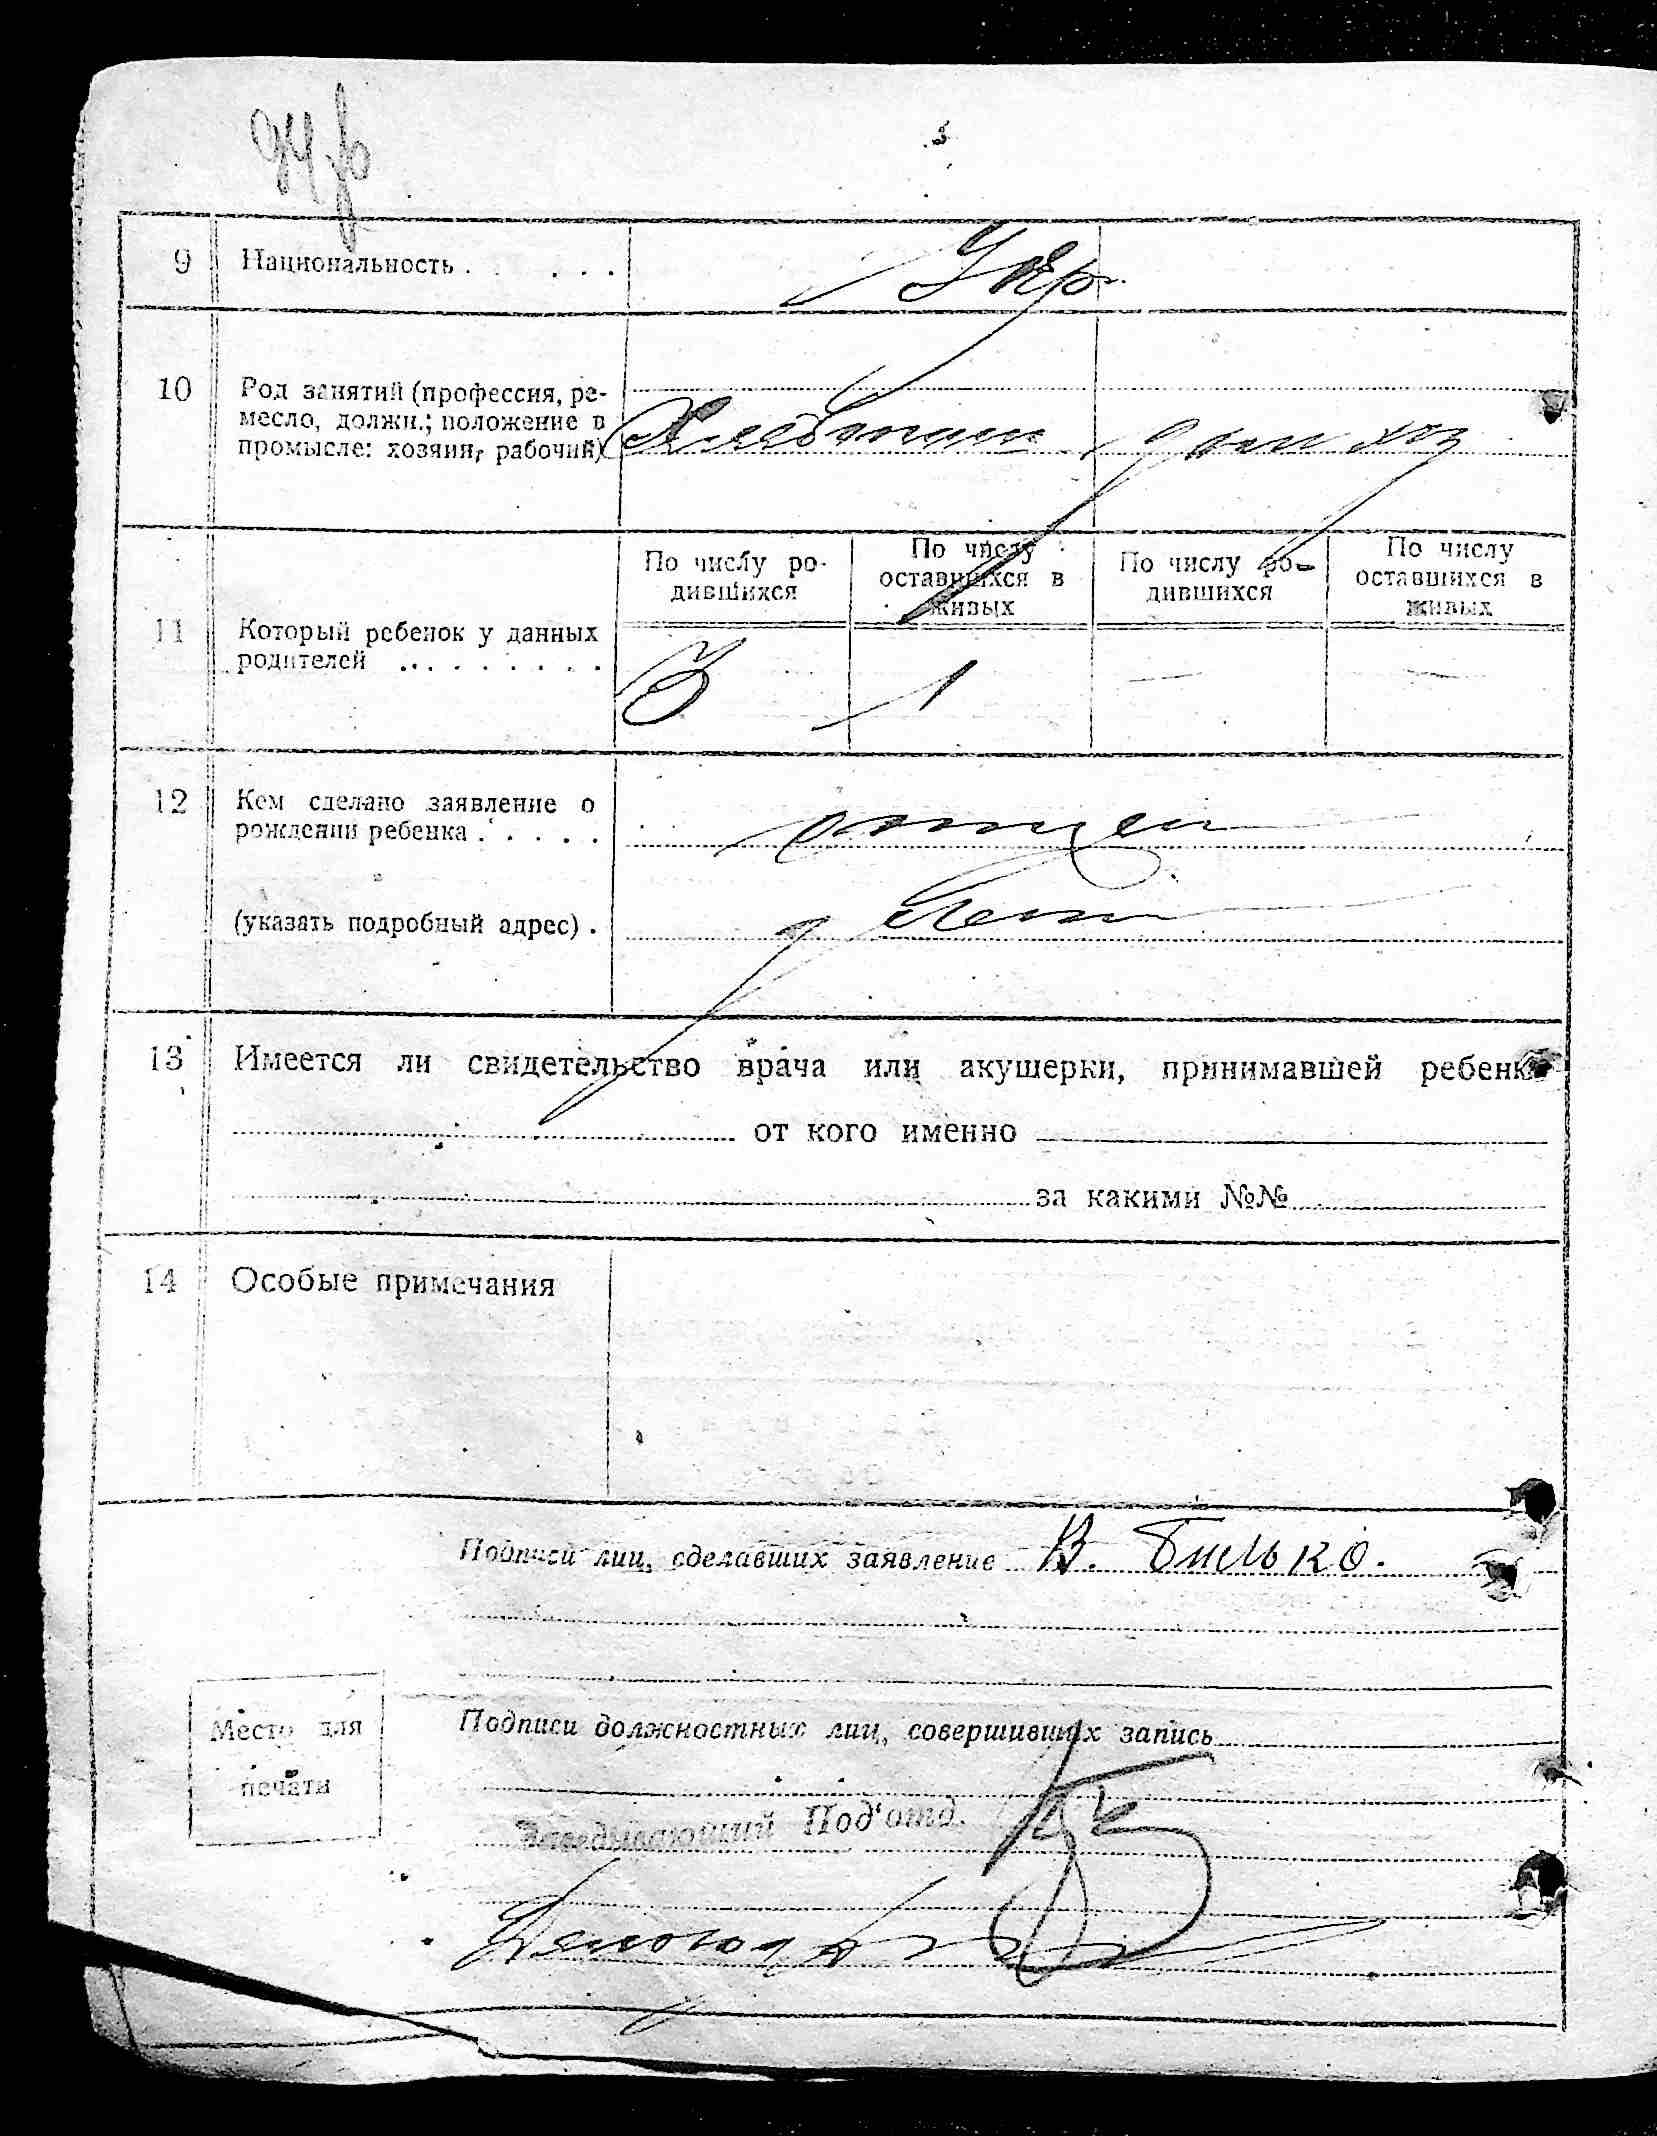 9 Национальность . . . . . Укр.
10 Род занятий (профессия, ре-
месло, должн.; положение в
промысле: хозяин, рабочий) Хлебопаш дом хоз
По числу ро- По числу По числу ро- По числу
дившихся оставшихся в дившихся оставшихся в
живых живых
11 Который ребенок у данных
родителей . . . . . . . . . 3 1 — —
12 Кем сделано заявление о
рождении ребенка . . . . . отцем
(указать подробный адрес) .
13 Имеется ли свидетельство врача или акушерки, принимавшей ребенка
от кого именно
за какими №№
14 Особые примечания
Подписи лиц, сделавших заявление В. Билько.
Место для
печати
Подписи должностных лиц, совершивших запись
Заведывающий Под'отд.